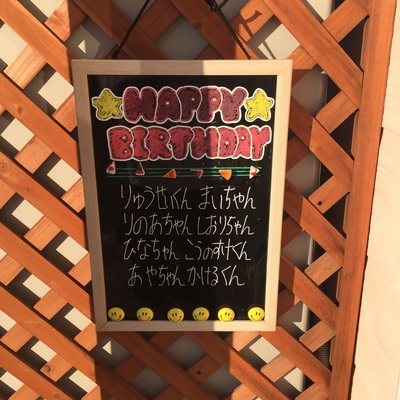 HAPPY
BIRTHDAY
りゅうせいくん まいちゃん
りのあちゃん しおりちゃん
ひなちゃん こうのすけくん
あやちゃん かけるくん